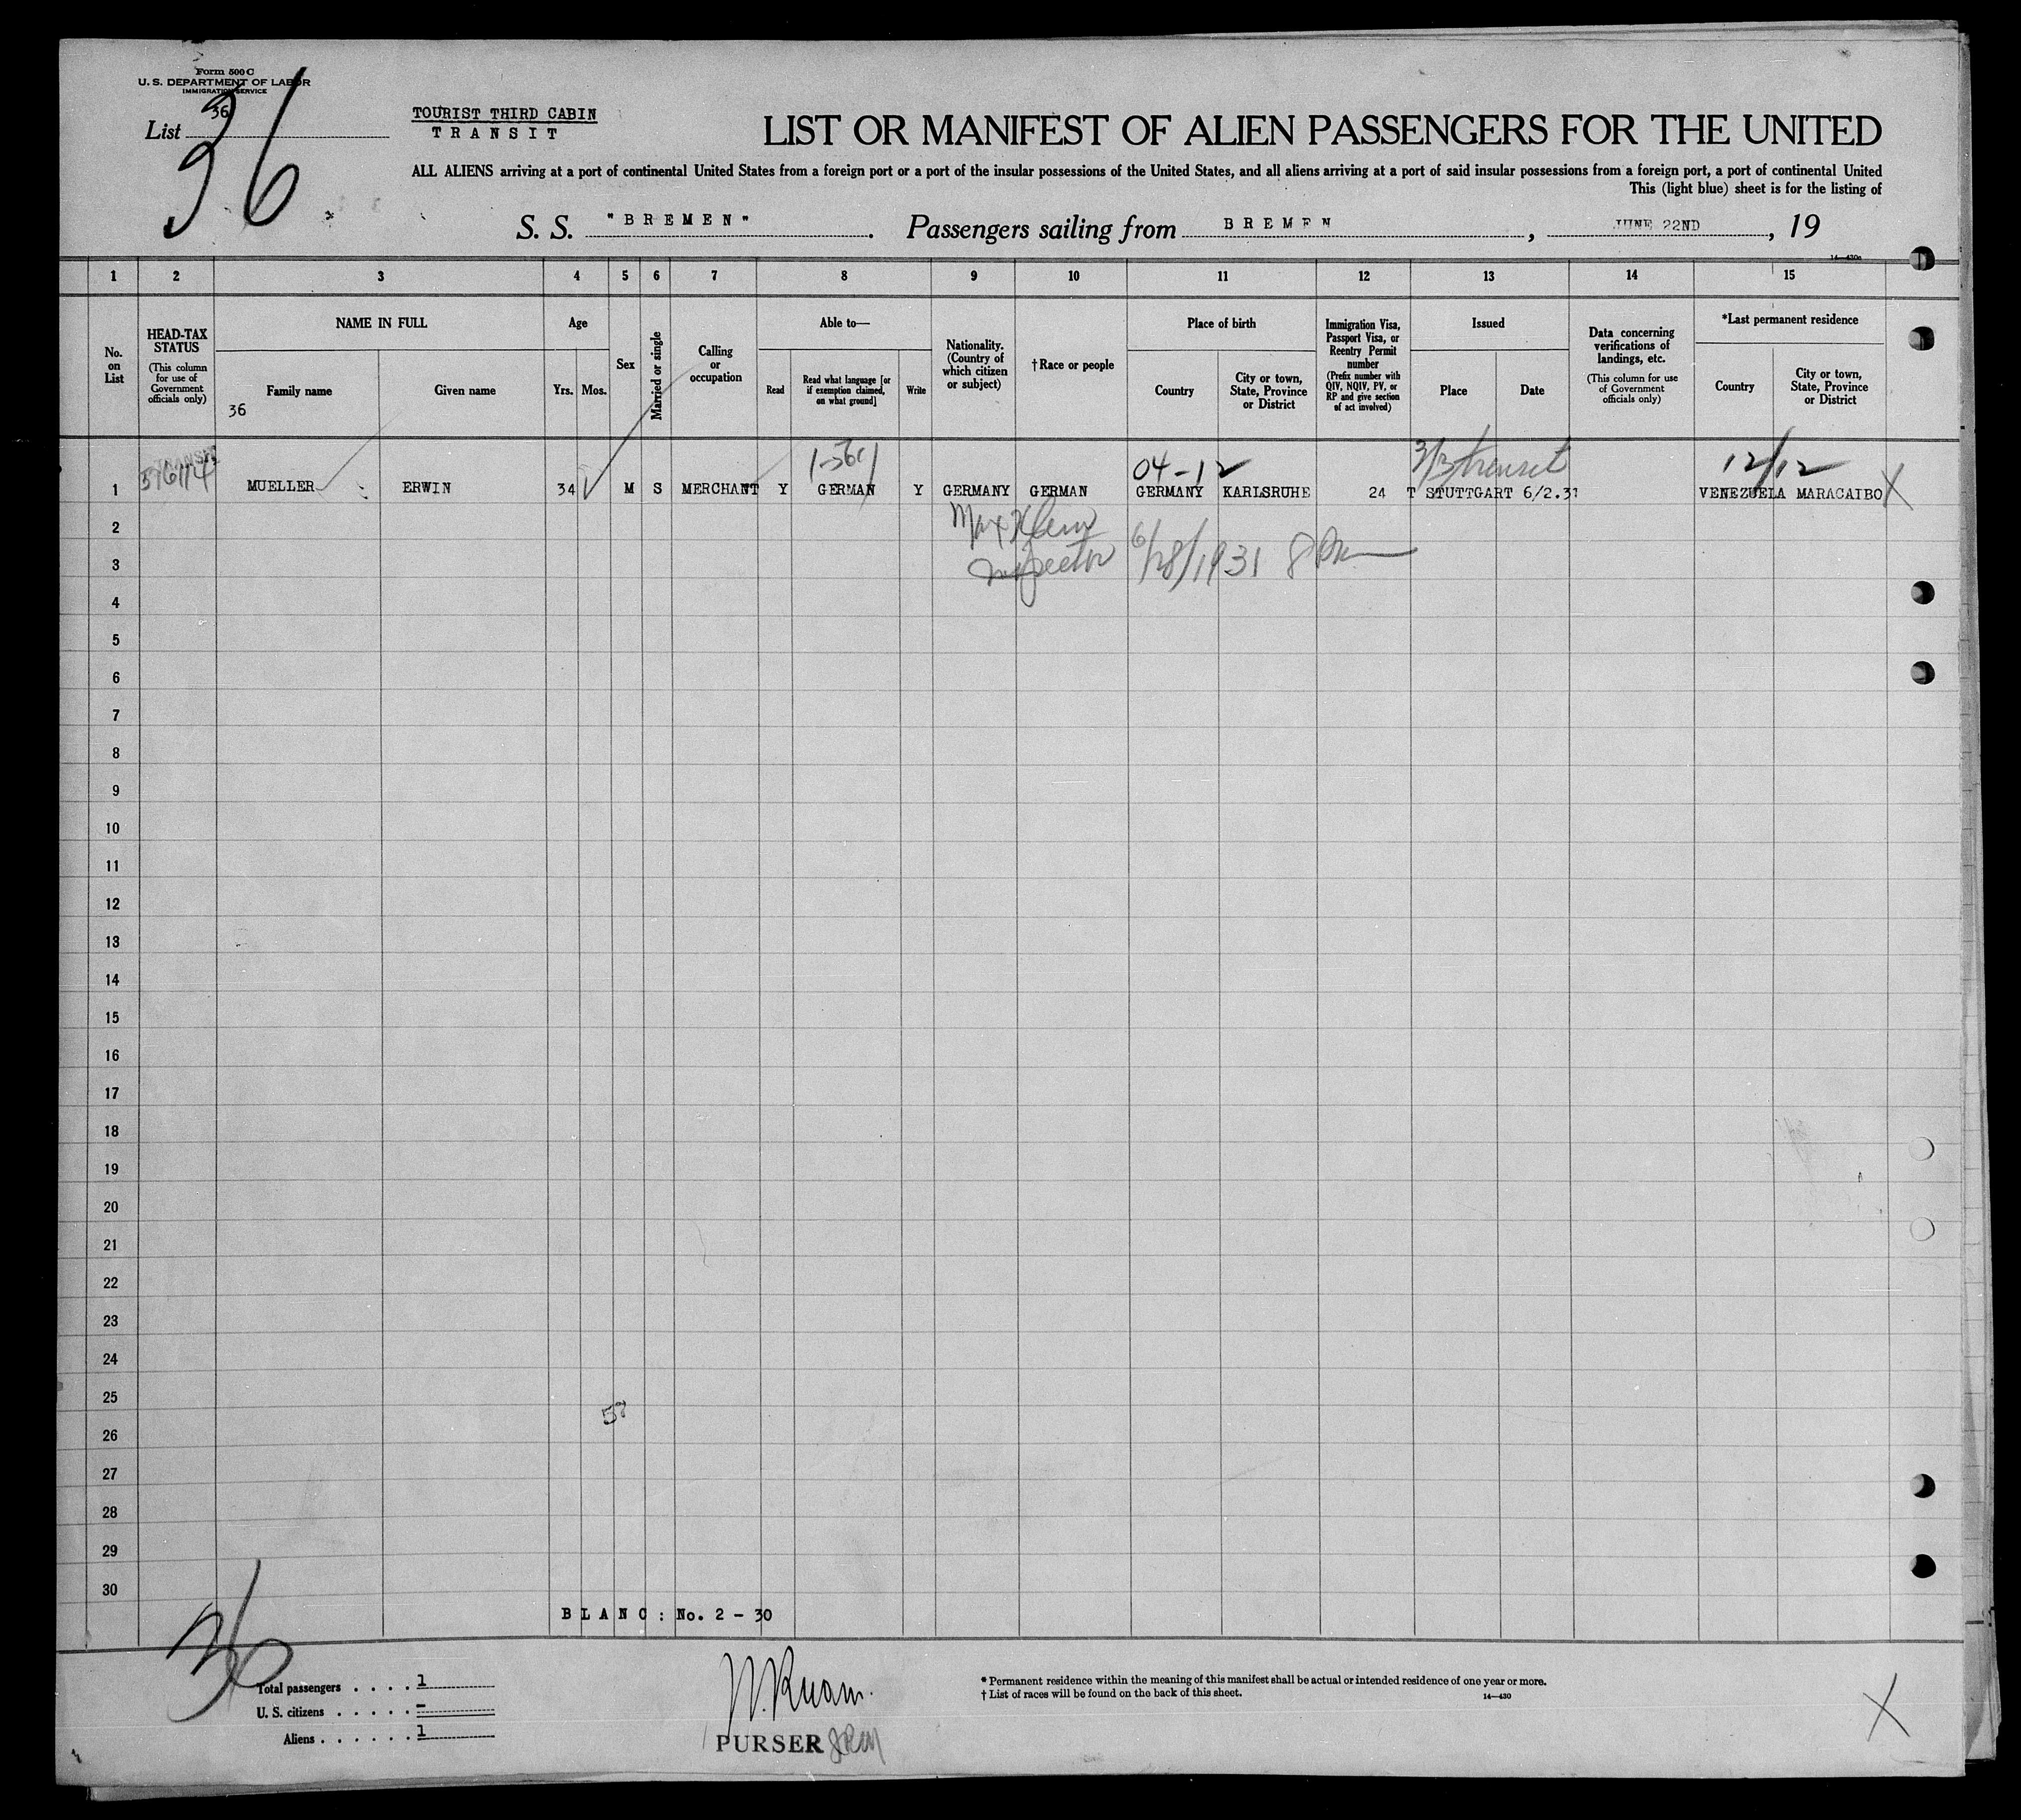 Form 500 C
U. S. DEPARTMENT OF LABOR
IMMIGRATION SERVICE
List 36
36
TOURIST THIRD CABIN
TRANSIT
LIST OR MANIFEST OF ALIEN PASSENGERS FOR THE UNITED
ALL ALIENS arriving at a port of continental United States from a foreign port or a port of the insular possessions of the United States, and all aliens arriving at a port of said insular possessions from a foreign port, a port of continental United
This (light blue) sheet is for the listing of
S. S. "BREMEN". Passengers sailing from BREMEN, JUNE 22ND, 19
14—430a
1 2 3 4 5 6 7 8 9 10 11 12 13 14 15
No. on List
HEAD-TAX STATUS (This column for use of Government officials only)
NAME IN FULL
Family name
Given name
36
Age
Yrs. Mos.
Sex
Married or single
Calling or occupation
Able to—
Read
Read what language [or if exemption claimed, on what ground]
Write
Nationality. (Country of which citizen or subject)
†Race or people
Place of birth
Country
City or town, State, Province or District
Immigration Visa, Passport Visa, or Reentry Permit number (Prefix number with QIV, NQIV, PV, or RP and give section of act involved)
Issued
Place
Date
Data concerning verifications of landings, etc. (This column for use of Government officials only)
*Last permanent residence
Country
City or town, State, Province or District
TRANSIT
04-12 3/3 transit 12/12
1 MUELLER ERWIN 34 M S MERCHANT Y GERMAN Y GERMANY GERMAN GERMANY KARLSRUHE 24 T STUTTGART 6/2.31 VENEZUELA MARACAIBO X
2
Max Klein
3
Inspector 6/28/1931 8 Pm
4
5
6
7
8
9
10
11
12
13
14
15
16
17
18
19
20
21
22
23
24
25
57
26
27
28
29
30
BLANC: No. 2 - 30
36
Total passengers . . . . 1
U. S. citizens . . . . . –
Aliens . . . . . . 1
PURSER
* Permanent residence within the meaning of this manifest shall be actual or intended residence of one year or more.
† List of races will be found on the back of this sheet.
14—430
X